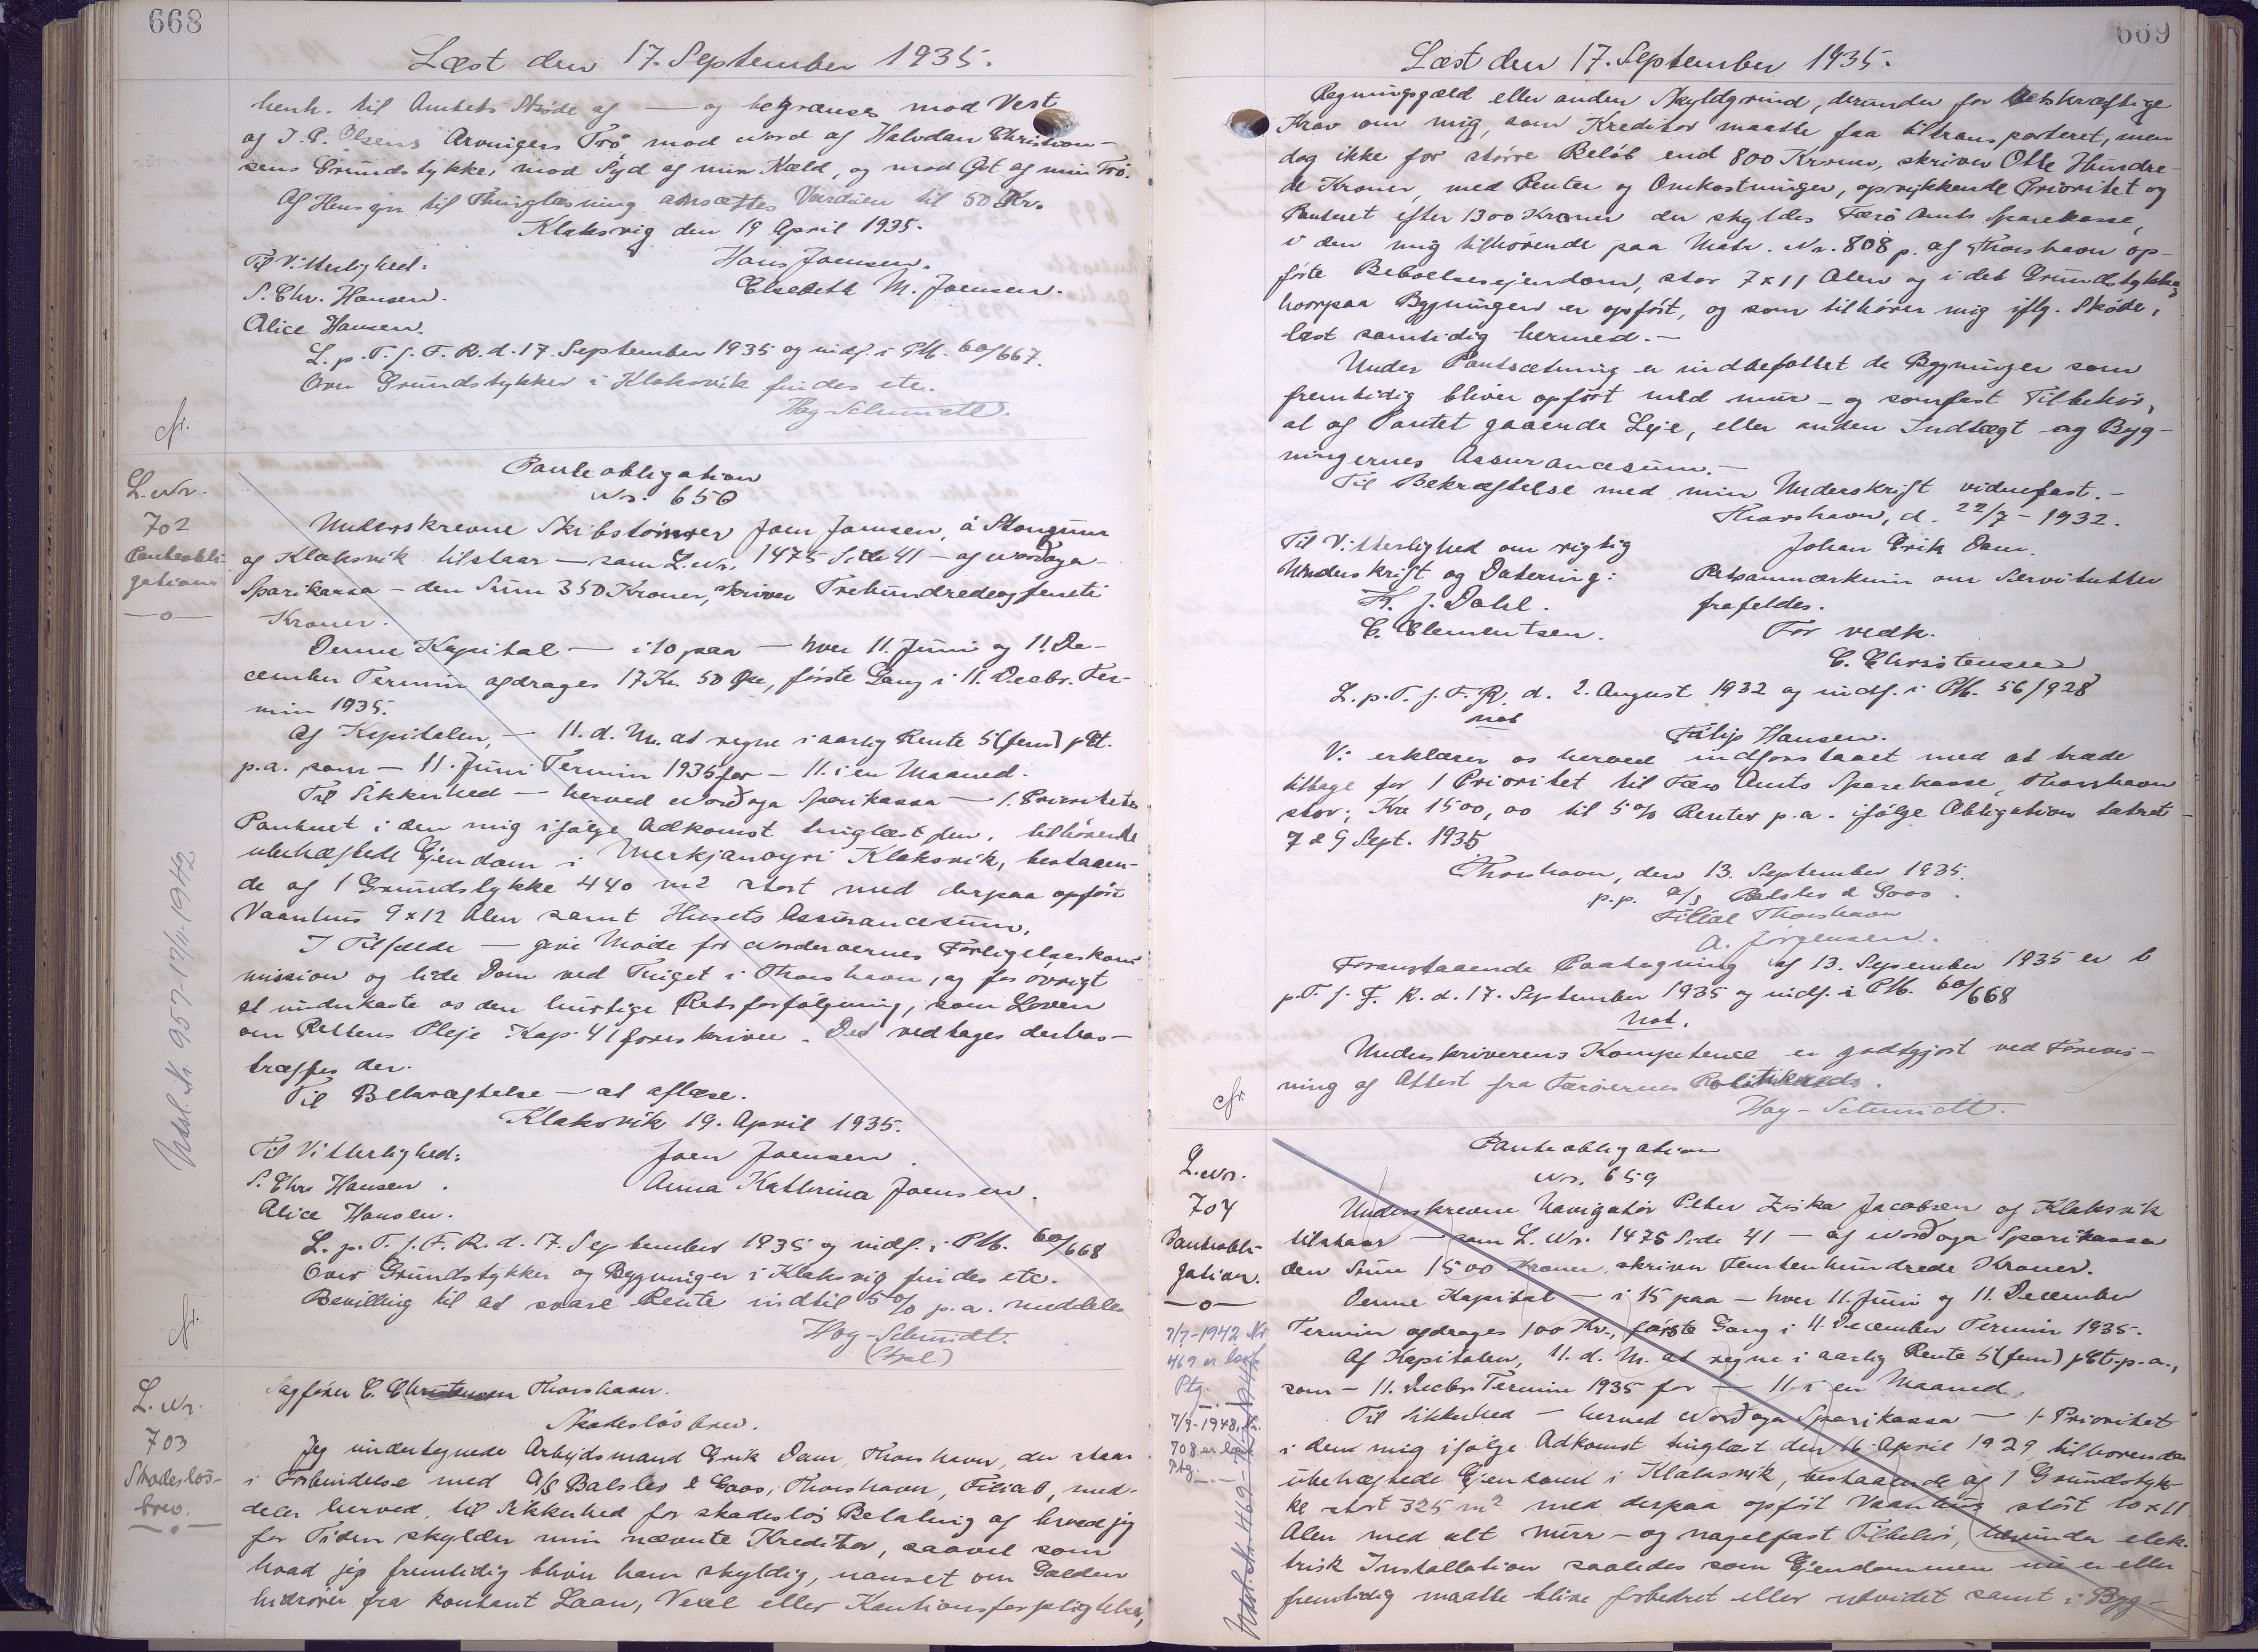 668
Læst den 17. September 1935.
henh. til Amtets Skøde af — og begrænses mod Vest
af J. P. Olsens Arvingers Trø mod Nord af Halvdan Christian-
sens Grundstykke, mod Syd af min Kæld, og mod Øst af min Trø.
Af Hensyn til Thinglæsning ansættes Værdien til 50 Kr.
Klaksvig den 19 April 1935.
Til Vitterlighed:
Hans Joensen.
S. Chr. Hansen.
Elsebeth M. Joensen.
Alice Hansen.
L. p. T. f. F. R. d. 17. September 1935 og indf. i PM. 60/667.
Over Grundstykker i Klaksvik findes etc.
Høg-Schmidt.
cfr.
L. Nr.
702
Panteobli-
gation
—o—
Panteobligation
Nr. 650
Underskrevne Skibstømrer Joen Joensen, á Stongum
af Klaksvik tilstaar — som L. Nr. 1475 Side 41 — af Norðoya
Sparikassa — den Sum 350 Kroner, skriver Trehundredeogfemti
Kroner.
Denne Kapital — i 10 paa — hver 11. Juni og 11. De-
cember Termin afdrages 17 Kr. 50 Øre, første Gang i 11. Decbr. Ter-
min 1935.
Af Kapitalen, — 11. d. M. at regne i aarlig Rente 5 (fem) pCt.
p.a. som — 11. Juni Termin 1935 for — 11. i en Maaned.
Til Sikkerhed — herved Norðoya Sparikassa — 1. Prioritets
Panteret i den mig ifølge Adkomst tinglæst den. tilhørende
ubehæftede Ejendom i Klaksvik, bestaaen-
de af 1 Grundstykke 440 m2 stort med derpaa opført
Vaanhus 9 x 12 Alen samt Husets Assurancesum.
I Tilfælde — give Møde for Norderøernes Forligelseskom-
mission og lide Dom ved Tinget i Thorshavn, og for øvrigt
at underkaste os den hurtige Retsforfølgning, som Loven
om Rettens Pleje Kap 41 foreskriver. Det vedtages derhos —
træffes der.
Til Bekræftelse — at aflæse.
Klaksvik 19. April 1935.
Til Vitterlighed:
Joen Joensen.
S. Chr Hansen.
Anna Kathrina Joensen.
Alice Hansen.
L. p. T. f. F. R. d. 17. September 1935 og indf. i PM. 60/668
Over Grundstykker og Bygninger i Klaksvig findes etc.
Bevilling til at svare Rente indtil 5% p.a. meddeles
Høg-Schmidt.
Udsl. Nr 957-17/11-1942
cfr.
L. Nr.
703
Skadesløs-
brev.
—o—
Sagfører C. Christensen Thorshavn.
Skadesløsbrev.
Jeg undertegnede Arbejdsmand Erik Dam, Thorshavn, der staar
i Forbindelse med A/S Balslev & Goos, Thorshavn, Filial, med-
deler herved, til Sikkerhed for skadesløs Betaling af hvad jeg
for Tiden skylder min nævnte Kreditor, saavel som
hvad jeg fremtidig bliver ham skyldig, uanset om Gælden
hidrører fra kontant Laan, Vexel eller Kautionsforpligtelser,
669
Læst den 17. September 1935.
Regningsgæld eller anden Skyldgrund, derunder for retskraftige
Krav om mig, som Kreditor maatte faa tiltransporteret, men
dog ikke for større Beløb end 800 Kroner, skriver Otte Hundre-
de Kroner, med Renter og Omkostninger, oprykkende Prioritet og
Panteret efter 1300 Kroner der skyldes Færø Amts Sparekasse,
i den mig tilhørende paa Matr. Nr. 808 p. af Thorshavn op-
førte Beboelsesejendom, stor 7 x 11 Alen og i det Grundstykke,
hvorpaa Bygningen er opført, og som tilhører mig iflg. Skøde,
læst samtidig hermed. —
Under Pantsætning er indbefattet de Bygninger som
fremtidig bliver opført med mur- og sømfast Tilbehør,
al af Pantet gaaende Leje, eller anden Indtægt og Byg-
ningernes Assurancesum. —
Til Bekræftelse med min Underskrift vidnefast. —
Thorshavn, d. 22/7 - 1932.
Til Vitterlighed om rigtig
Johan Erik Dam.
Underskrift og Datering:
Retsanmærkning om Servitutter
J. Dahl.
frafaldes.
C. Clementsen.
For vedk.
C. Christensen
L. p. T. f. F. R. d. 2. August 1932 og indf. i PM. 56/928
not
Filip Hansen.
Vi erklærer os herved indforstaaet med at træde
tilbage for 1 Prioritet til Færø Amts Sparekasse, Thorshavn
stor, Kr. 1500,00 til 5% Renter p.a. ifølge Obligation dateret
7 & 9 Sept. 1935
Thorshavn, den 13. September 1935.
p.p. A/S Balslev & Goos.
Filial Thorshavn
A. Jørgensen.
Foranstaaende Paategning af 13. September 1935 er l
p. T. f. F. R. d. 17. September 1935 og indf. i PM. 60/668
Not.
Underskriverens Kompetence er godtgjort ved Forevis-
ning af Attest fra Færøernes
Høg-Schmidt.
cfr.
L. Nr.
704
Panteobli-
gation.
—o—
7/7-1942 Nr
469 er læst
Ptg.
7/9-1948. Nr.
708 er læst
Ptg.
Panteobligation
Nr. 659
Underskrevne Navigatør Peter Ziska Jacobsen af Klaksvik
tilstaar — som L. Nr. 1475 Side 41 — af Norðoya Sparikassa
den Sum 1500 Kroner, skriver Femtenhundrede Kroner.
Denne Kapital — i 15 paa — hver 11. Juni og 11. December
Termin afdrages 100 Kr., første Gang i 11. December Termin 1935.
Af Kapitalen, 11. d. M. at regne i aarlig Rente 5 (fem) pCt. p.a.,
som — 11. Decbr. Termin 1935 for — 11. i en Maaned.
Til Sikkerhed — herved Norðoya Sparikassa — 1. Prioritet
i dend mig ifølge Adkomst tinglæst den 16. April 1929 tilhørende
ubehæftede Ejendomd i Klaksvik, bestaaende af 1 Grundstyk-
ke stort 325 m2 med derpaa opført Vaanhus stort 10 x 11
Alen med alt murr- og nagelfast Tilbehør, herunder elek-
trisk Installation saaledes som Ejendommen nu er eller
fremtidig maatte blive forbedret eller udvidet samt i Byg-